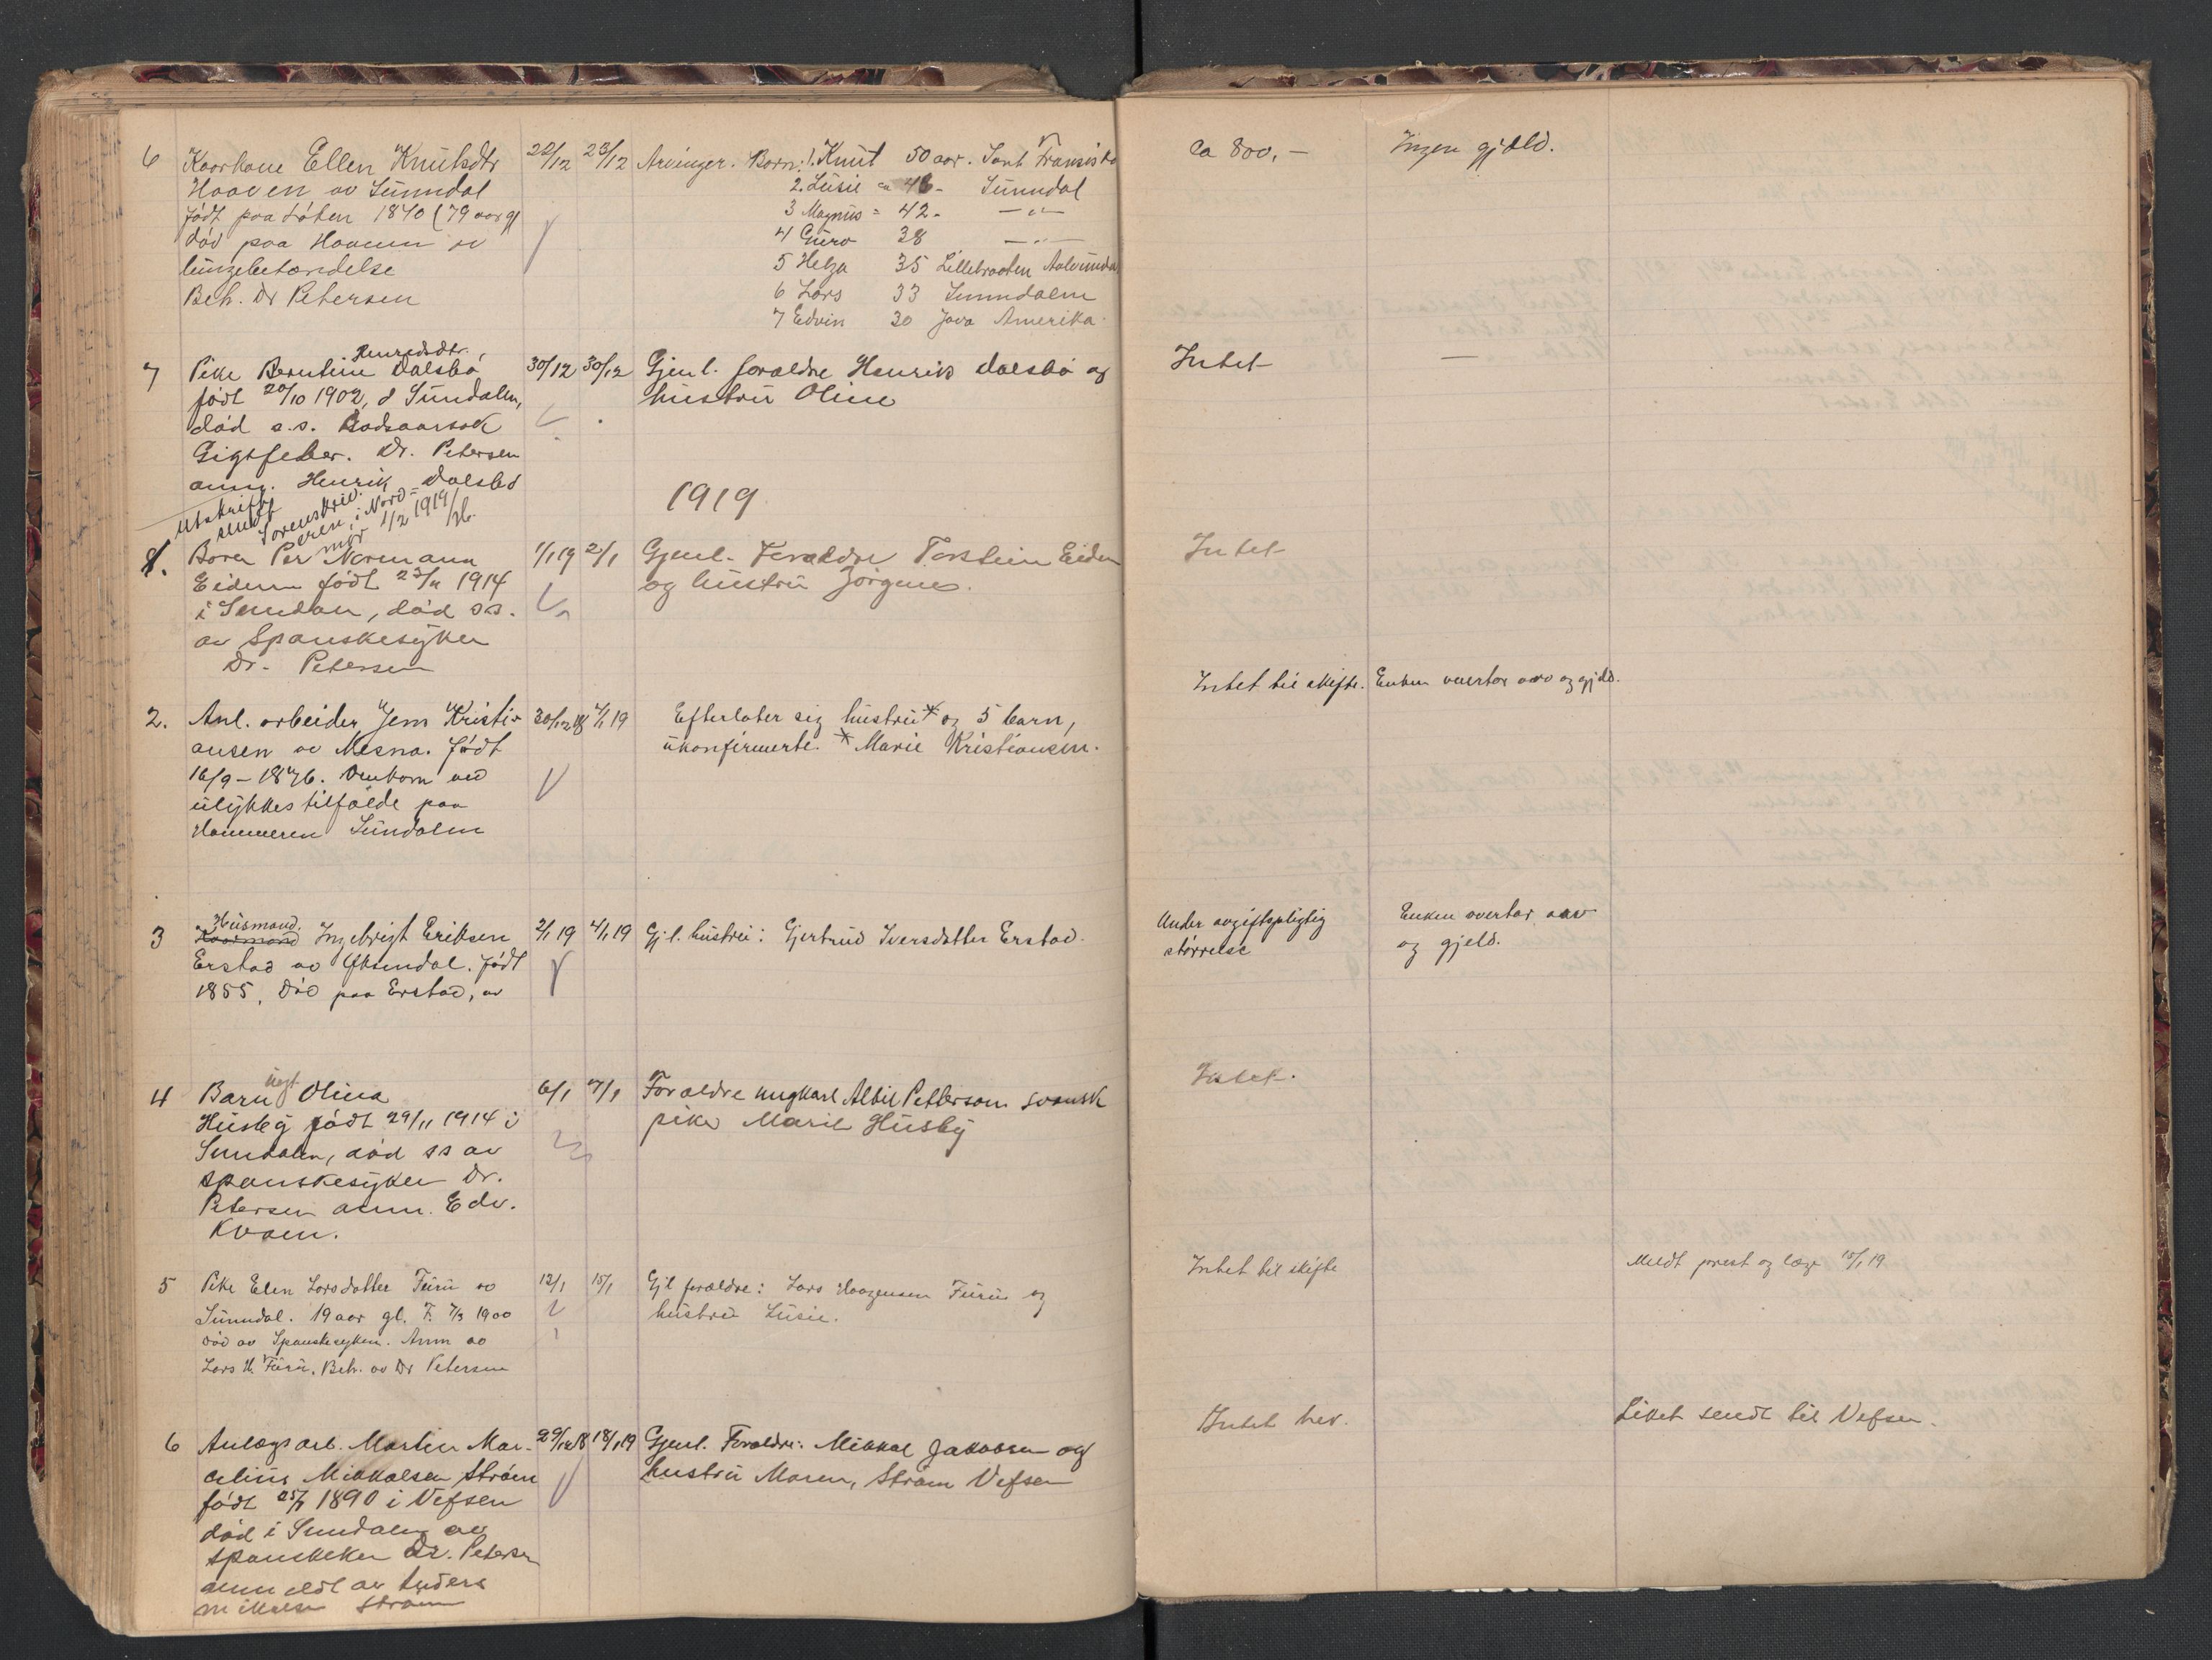 6 Kaarkone Ellen Knutsdtr 22/12 23/12 Arvinger. Barn: 1. Knut 50 aar. Sant Fransisko ca 800,- Ingen gjæld.
Haaven av Sunndal 2. Lusie " 46 - Sunndal
født paa Løten 1840 (79 aar gl 3 Magnus = 42 - — " —
død paa Haaven av 4 Guro 38 — " —
lungebetændelse 5 Helga 35 Lillebraaten Aalvunda
Beh. Dr Petersen 6 Lars 33 Sunndalen
7 Edvin 30 Java Amerika.
Henriksdtr.
7 Pike Berntine Dalsbø 30/12 30/12 Gjenl. foraldre Henrik Dalsbø og Intet —
født 20/10 1902, i Sundalen, hustru Oline
død s.s.
Gigtfeber. Dr. Petersen
anm. Henrik Dalsbø
Utskrift
sendt
Sorenskriveren i Nord-
mør 1/2 1919
1919.
1. Barn Per Normann 1/1 19 2/1 Gjenl. Foraldre Torstein Eiden Intet
Eidem født 23/11 1914 og hustru Jørgine.
i Sundalen, død s.s.
av Spanskesyken
Dr. Petersen
2. Anl. arbeider Jens Kristi- 30/12 18 4/1 19 Efterlater sig hustru * og 5 barn, Intet til skifte. Enken overtar arv og gjeld.
ansen av Mesna. Født ukonfirmerte. * Marie Kristiansen.
16/9 - 1876. Omkom ved
ulykkestilfælde paa
Hammeren Sundalen
Husmand.
3 Kaarmand Ingebrigt Eriksen 2/1 19 4/1 19 Gjl. hustru: Gjertrud Iversdatter Erstad. Under avgiftspligtig Enken overtar arv
Erstad av Øksendal. Født størrelse og gjeld.
1855. Død paa Erstad, av
uegt
4 Barn Olina 6/1 7/1 Foraldre ungkarl Albil Petterson svensk Intet.
Husby født 29/11 1914 i pike Marie Husby
Sundalen, død ss av
spanskesyken Dr.
Petersen anm. Edv.
Kvam.
5 Pike Elen Larsdatter Furu av 12/1 15/1 Gjl foraldre: Lars Haagensen Furu og Intet til skifte Meldt prest og læge 15/1 19
Sunndal. 19 aar gl. F. 7/3 1900 hustru Lusie.
død av Spanskesyken. Anm av
Lars H. Furu. Beh. av Dr Petersen
6 Anlægsarb. Martin Mar- 29/12 18 18/1 19 Gjenl. Foraldre: Mikkal Jakobsen og Intet Liket sendt til Vefsen.
selius Mikkalsen Strøm hustru Maren, Strøm Vefsen
født 25/7 1890 i Vefsen
død i Sundalen av
spanskeken Dr. Petersen
anmeldt av Anders
Mikalsen Strøm